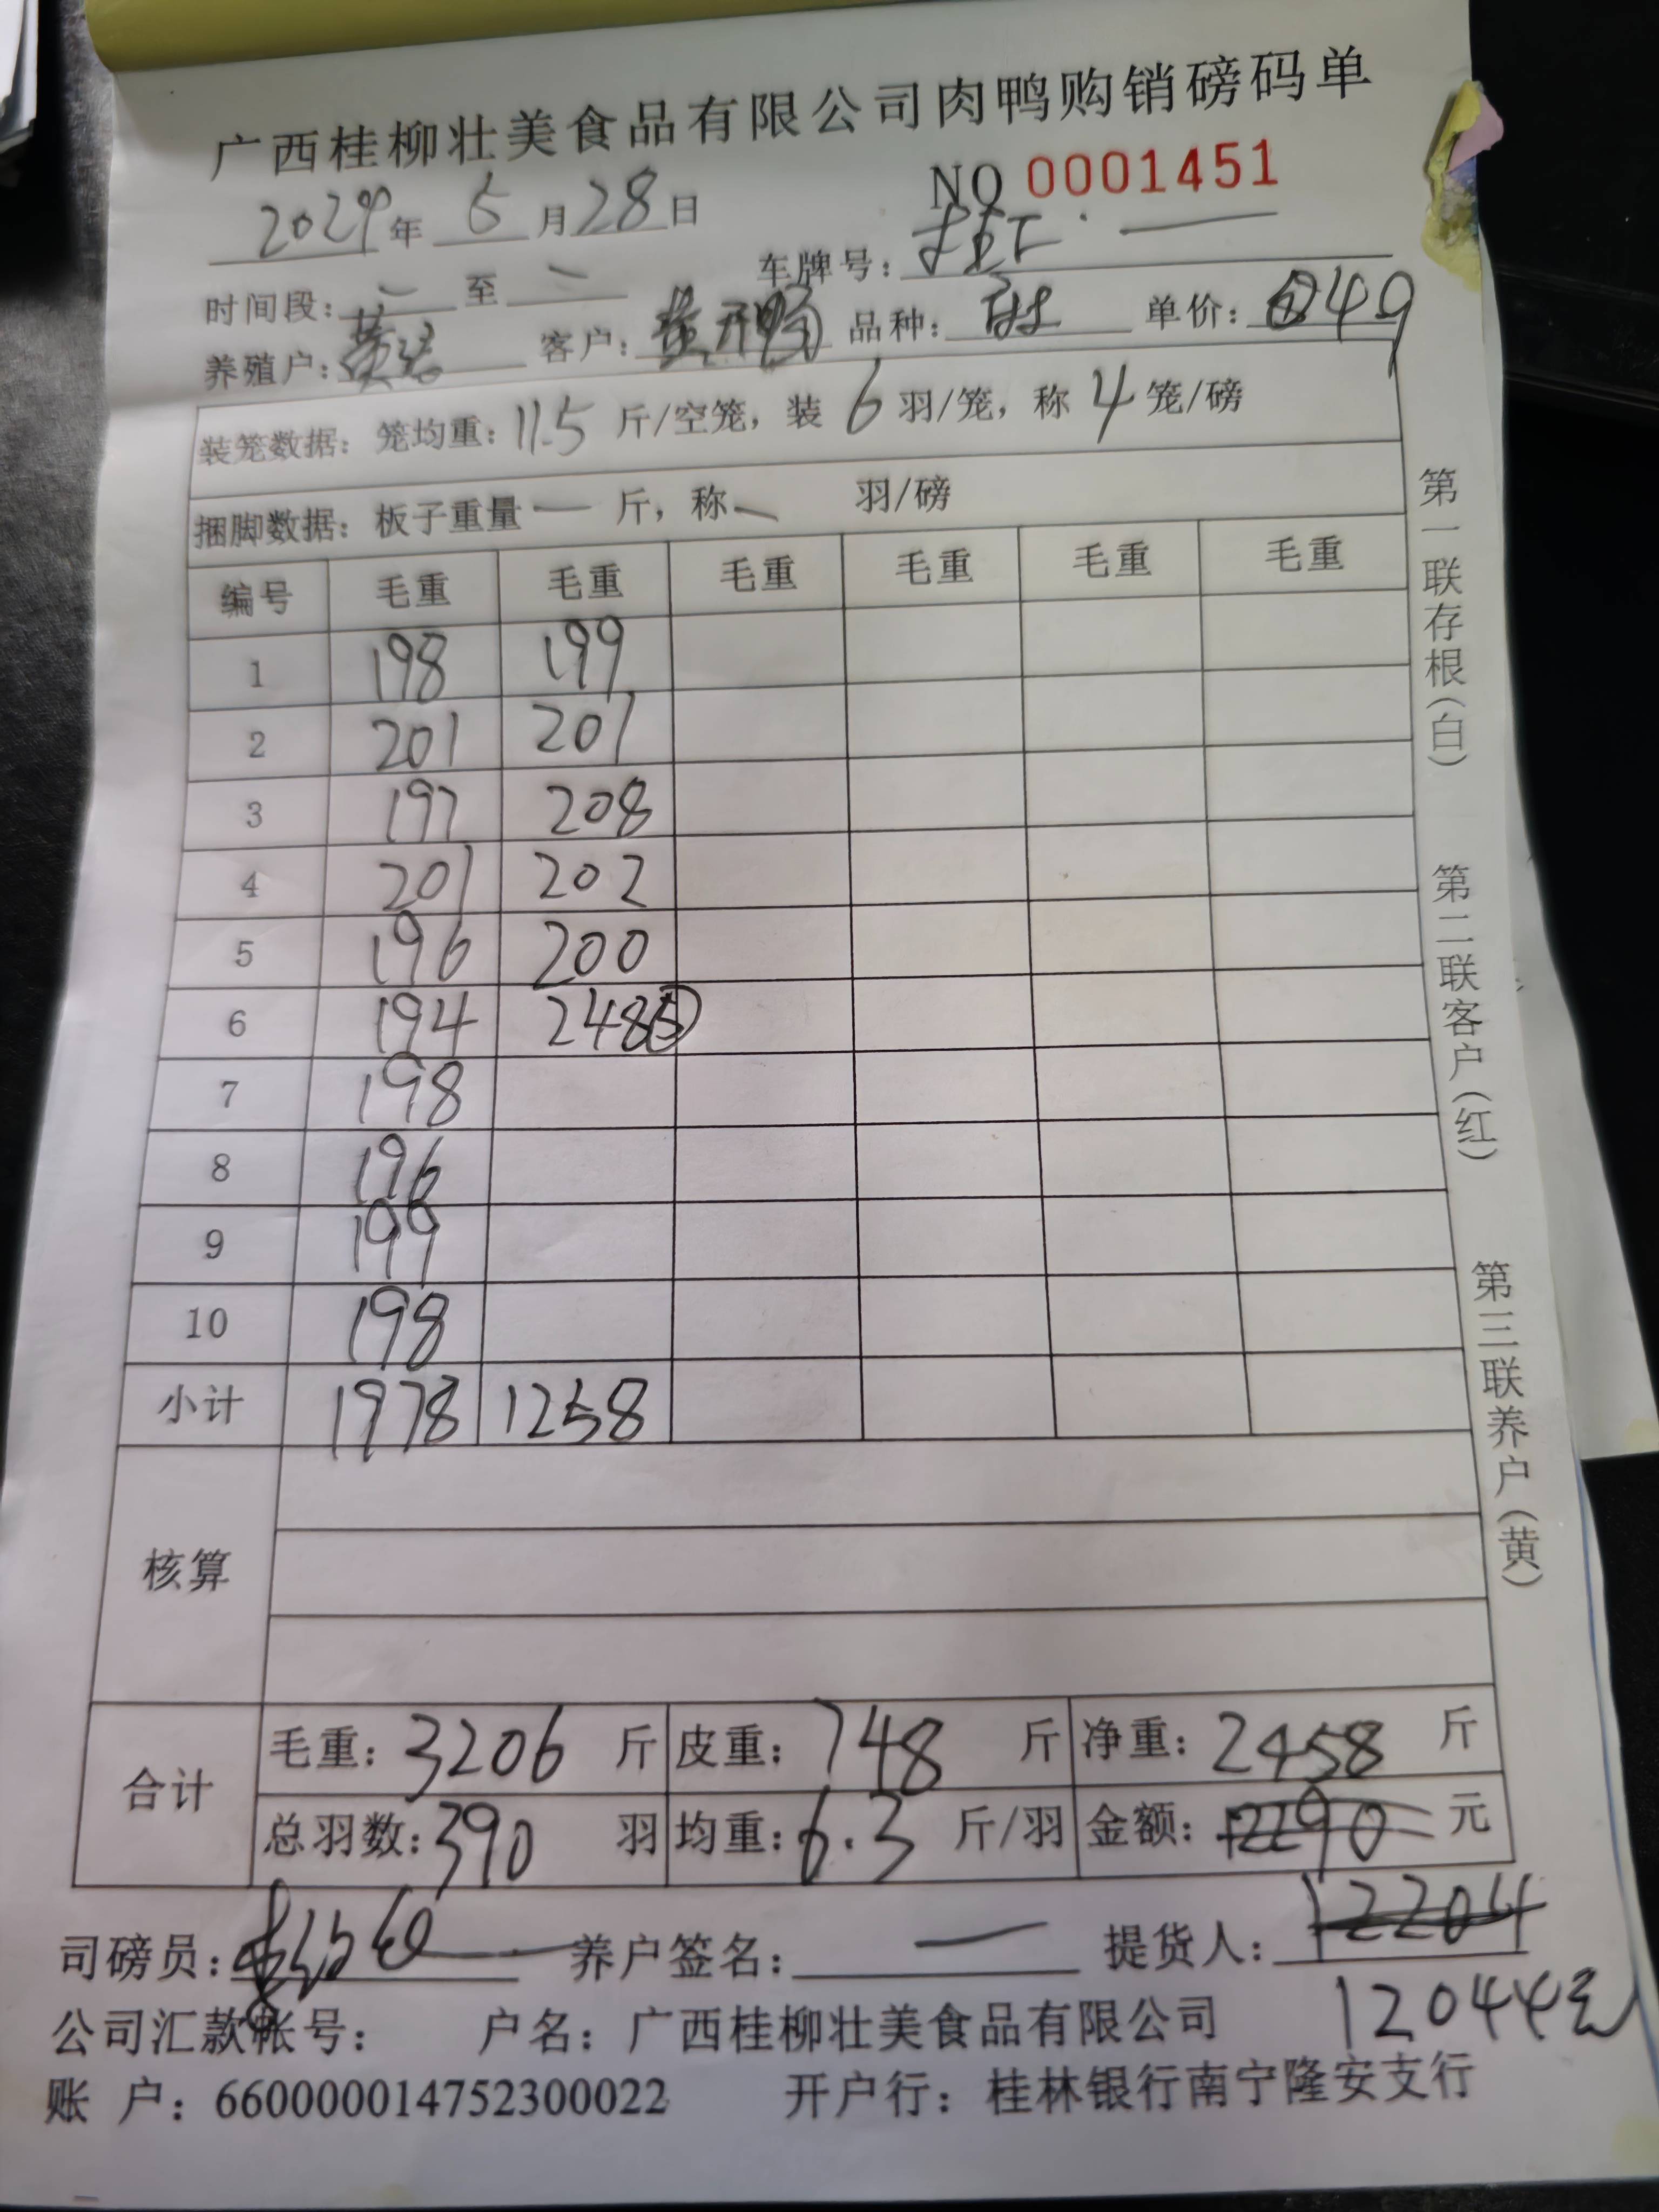 广西桂柳壮美食品有限公司肉鸭购销磅码单
NO 0001451
2024年 5月28日
时间段: 一 至 一 车牌号: 一
养殖户: 黄 客户: 黄开鸭 品种: 单价: 49
装笼数据: 笼均重: 11.5 斤/空笼, 装 6 羽/笼, 称 4 笼/磅
捆脚数据: 板子重量 一 斤, 称 一 羽/磅
编号 毛重 毛重 毛重 毛重 毛重 毛重
1 198 199
2 201 201
3 197 208
4 201 202
5 196 200
6 194 248⑤
7 198
8 196
9 199
10 198
小计 1978 1258
核算
合计
毛重: 3206 斤 皮重: 748 斤 净重: 2458 斤
总羽数: 390 羽 均重: 6.3 斤/羽 金额: 12290 元
司磅员: 养户签名: 一 提货人: 12204
12044元
公司汇款帐号: 户名: 广西桂柳壮美食品有限公司
账 户: 660000014752300022 开户行: 桂林银行南宁隆安支行
第一联存根(白) 第二联客户(红) 第三联养户(黄)